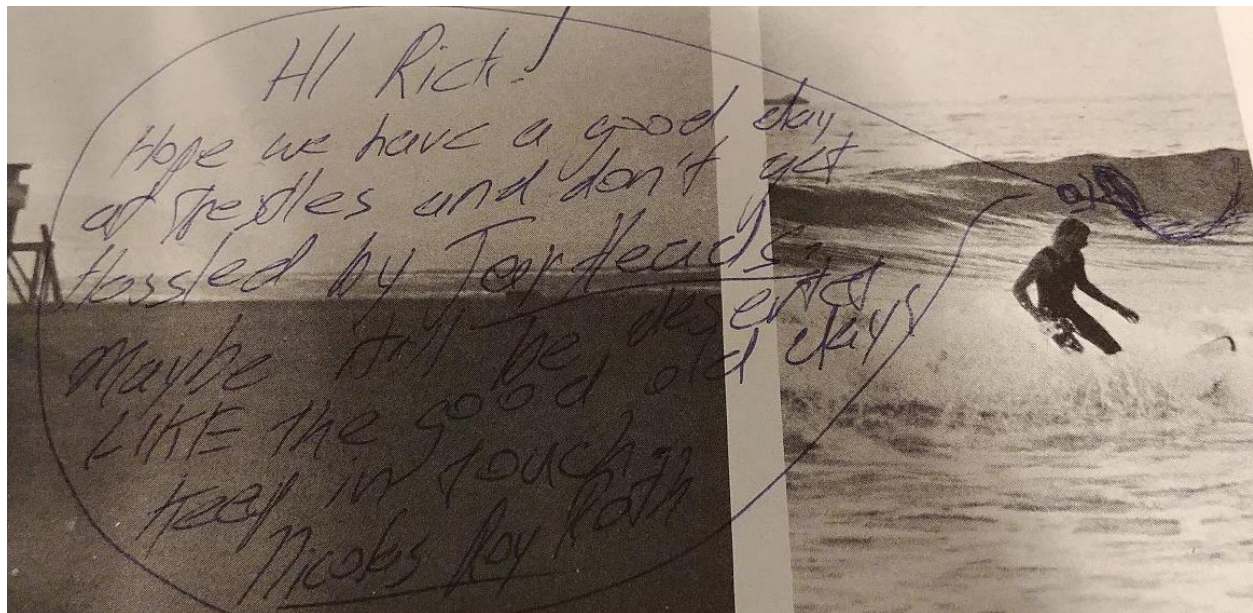 HI Rich!
Hope we have a good day
at Trestles and don't get
Hassled by Jar Heads.
Maybe it'll be deserted
LIKE the good old days
Keep in touch,
Roy